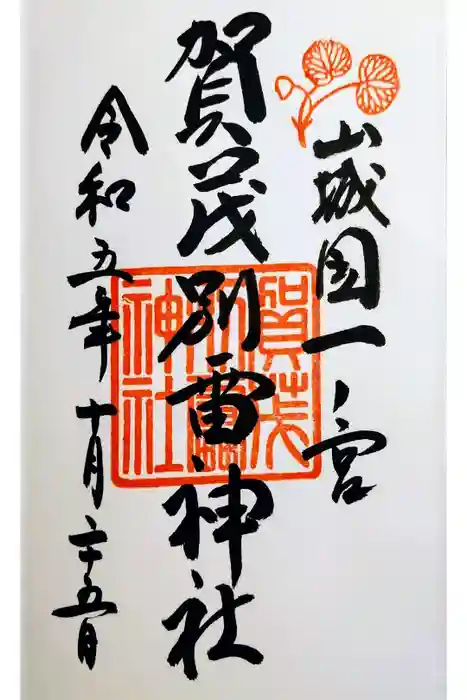 山城国一ノ宮
賀茂別雷神社
賀茂別雷神社
令和五年十月二十五日